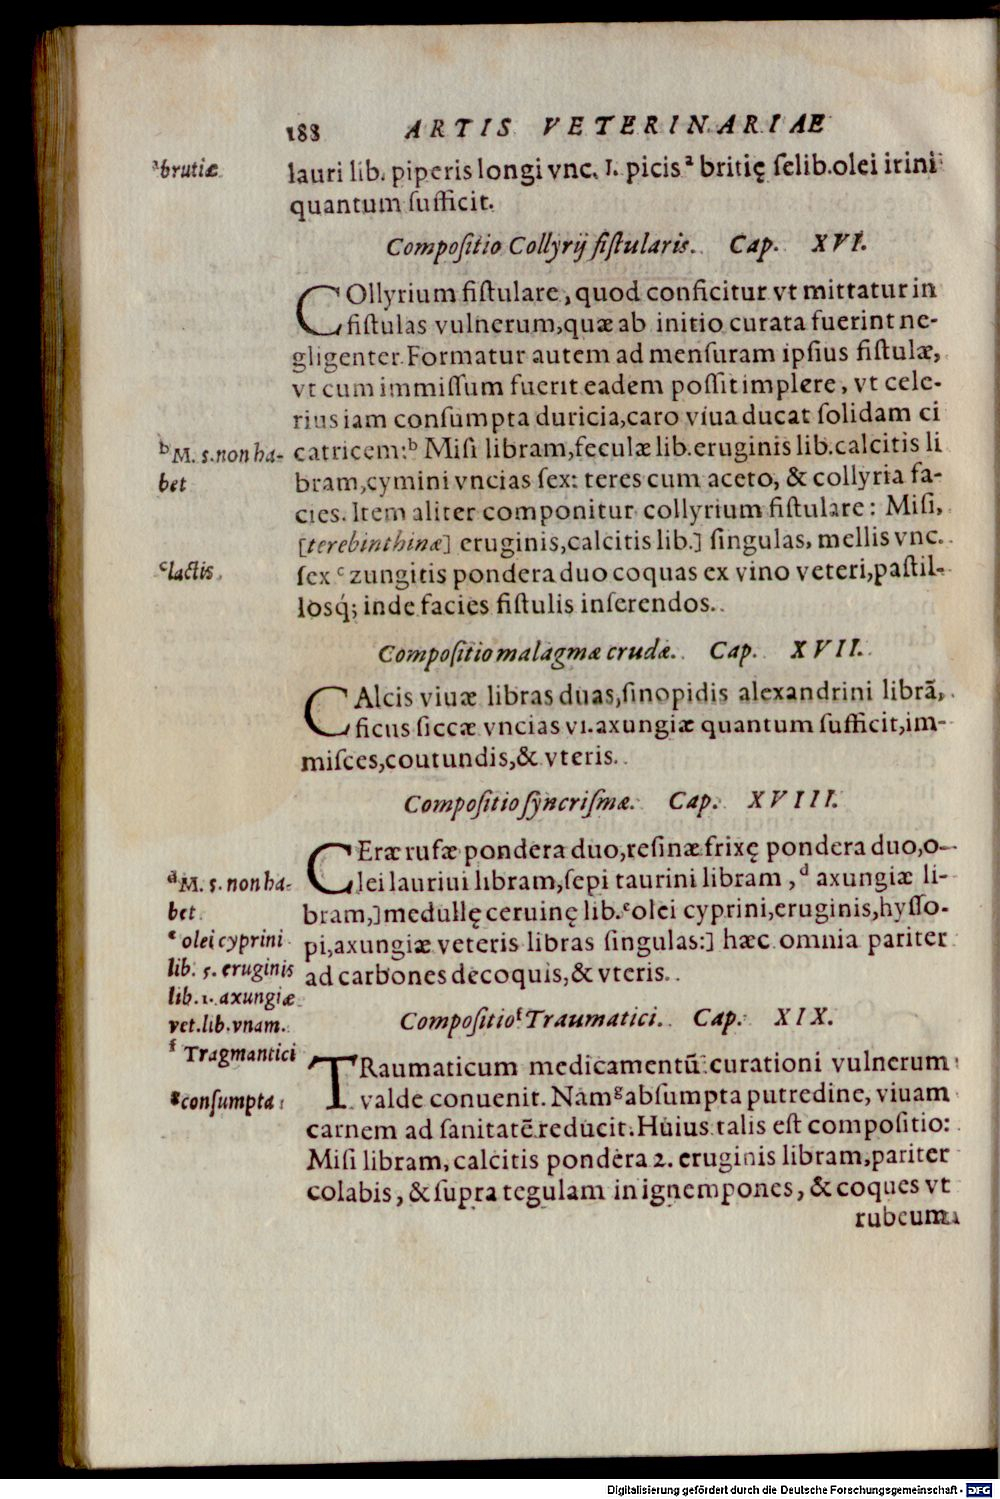 188 ARTIS VETERINARIAE
ᵃbrutiæ.
lauri lib. piperis longi vnc. I. picis ᵃ britię ſelib. olei irini
quantum ſufficit.
Compoſitio Collyrij fiſtularis. Cap. XVI.
COllyrium fiſtulare, quod conficitur vt mittatur in
fiſtulas vulnerum, quæ ab initio curata fuerint ne-
gligenter. Formatur autem ad menſuram ipſius fiſtulæ,
vt cum immiſſum fuerit eadem poſſit implere, vt cele-
rius iam conſumpta duricia, caro viua ducat ſolidam ci
ᵇM. s. non ha-
bet
catricem:ᵇ Miſi libram, feculæ lib. eruginis lib. calcitis li
bram, cymini vncias ſex: teres cum aceto, & collyria fa-
cies. Item aliter componitur collyrium fiſtulare: Miſi,
[terebinthinæ] eruginis, calcitis lib.] ſingulas, mellis vnc.
ᶜlactis.
ſex ᶜ zungitis pondera duo coquas ex vino veteri, paſtil-
losq́; inde facies fiſtulis inſerendos.
Compoſitio malagmæ crudæ. Cap. XVII.
CAlcis viuæ libras duas, ſinopidis alexandrini librā,
ficus ſiccæ vncias vi. axungiæ quantum ſufficit, im-
miſces, coutundis, & vteris.
Compoſitio ſyncriſmæ. Cap. XVIII.
CEræ rufæ pondera duo, reſinæ frixę pondera duo, o-
ᵈM. s. non ha-
bet.
lei laurini libram, ſepi taurini libram, ᵈ axungiæ li-
bram,] medullę ceruinę lib. ᵉolei cyprini, eruginis, hyſſo-
ᵉ olei cyprini
lib. s. eruginis
lib. 1. axungiæ
vet. lib. vnam.
pi, axungiæ veteris libras ſingulas:] hæc omnia pariter
ad carbones decoquis, & vteris.
Compoſitio ᶠ Traumatici. Cap. XIX.
ᶠ Tragmantici
TRaumaticum medicamentū curationi vulnerum
ᵍconſumpta:
valde conuenit. Nam ᵍ abſumpta putredine, viuam
carnem ad ſanitatē reducit. Huius talis eſt compoſitio:
Miſi libram, calcitis pondera 2. eruginis libram, pariter
colabis, & ſupra tegulam in ignem pones, & coques vt
rubeum
Digitalisierung gefördert durch die Deutsche Forschungsgemeinschaft - DFG